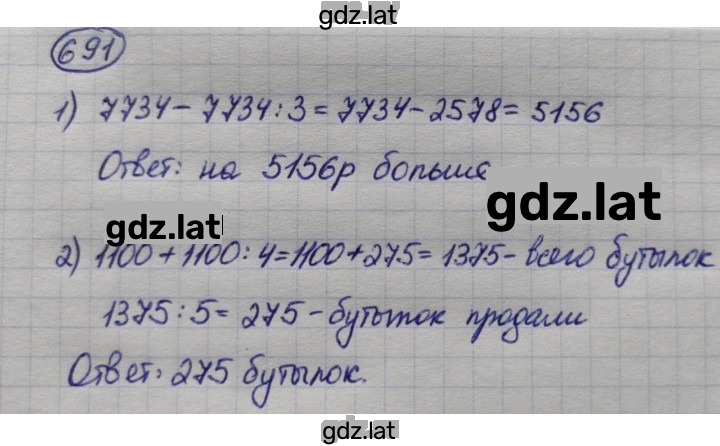 gdz.lat
691
1) 7734 - 7734 : 3 = 7734 - 2578 = 5156
Ответ: на 5156р больше
gdz.lat
gdz.lat
2) 1100 + 1100 : 4 = 1100 + 275 = 1375 - всего бутылок
1375 : 5 = 275 - бутылок продали
Ответ: 275 бутылок.
gdz.lat